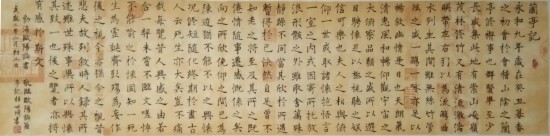 蘭亭記
永和九年歲在癸丑暮春
之初會於會稽山陰之蘭
亭脩禊事也群賢畢至少
長咸集此地有崇山峻領
茂林脩竹又有清流激湍
映帶左右引以為流觴曲
水列坐其次雖無絲竹管
絃之盛一觴一詠亦足以
暢敘幽情是日也天朗氣
清惠風和暢仰觀宇宙之
大俯察品類之盛所以遊
目騁懷足以極視聽之娛
信可樂也夫人之相與俯
仰一世或取諸懷抱悟言
一室之內或因寄所託放
浪形骸之外雖趣舍萬殊
靜躁不同當其欣於所遇
暫得於己快然自足不知
老之將至及其所之既
惓情隨事遷感慨係之矣
向之所欣俛仰之間已為
陳迹猶不能不以之興懷
況脩短隨化終期於盡古
人云死生亦大矣豈不痛
哉每覽昔人興感之由若
合一契未嘗不臨文嗟悼
不能喻之於懷固知一死
生為虛誕齊彭殤為妄作
後之視今亦由今之視昔
悲夫故列敘時人錄其所
述雖世殊事異所以興
懷其致一也後之覽者亦將
有感於斯文